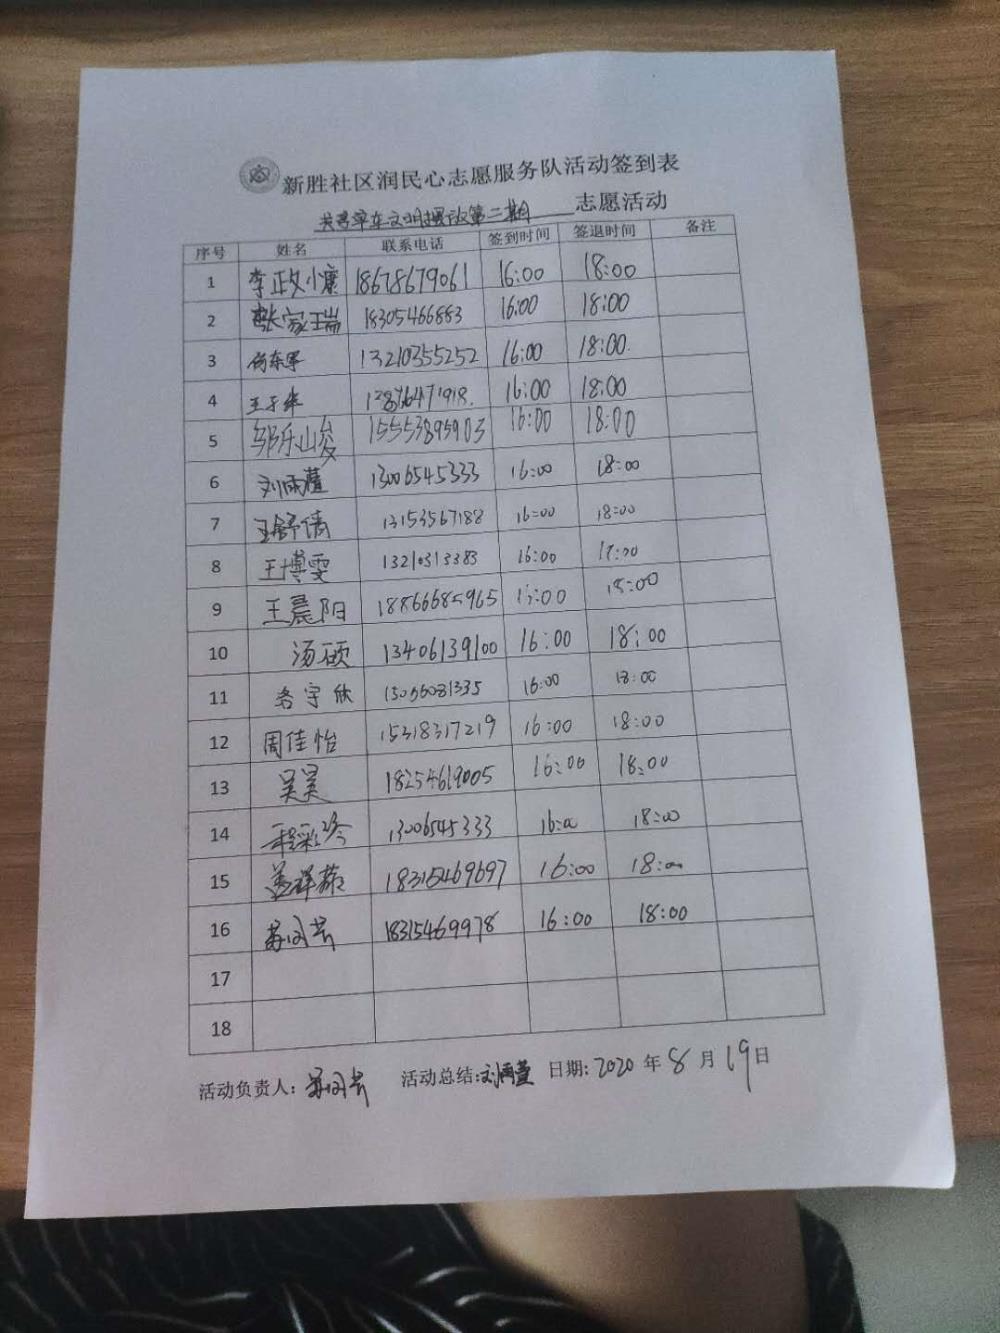 新胜社区润民心志愿服务队活动签到表
共享单车文明摆放第二期 志愿活动
序号 姓名 联系电话 签到时间 签退时间 备注
1 李政小康 18678679061 16:00 18:00
2 张家瑞 18305466883 16:00 18:00
3 杨东军 13210355252 16:00 18:00
4 16:00 18:00
5 邹乐山 15553895903 16:00 18:00
6 刘雨萱 13006545333 16:00 18:00
7 王舒倩 13153567188 16:00 18:00
8 王博雯 13210313383 16:00 18:00
9 王晨阳 18866685965 16:00 18:00
10 汤硕 13406139100 16:00 18:00
11 宇欣 16:00 18:00
12 周佳怡 15318317219 16:00 18:00
13 吴昊 18254619005 16:00 18:00
14 程彩珍 13006545333 16:00 18:00
15 18315469697 16:00 18:00
16 18315469978 16:00 18:00
17
18
活动负责人: 活动总结:刘雨萱 日期:2020年8月19日